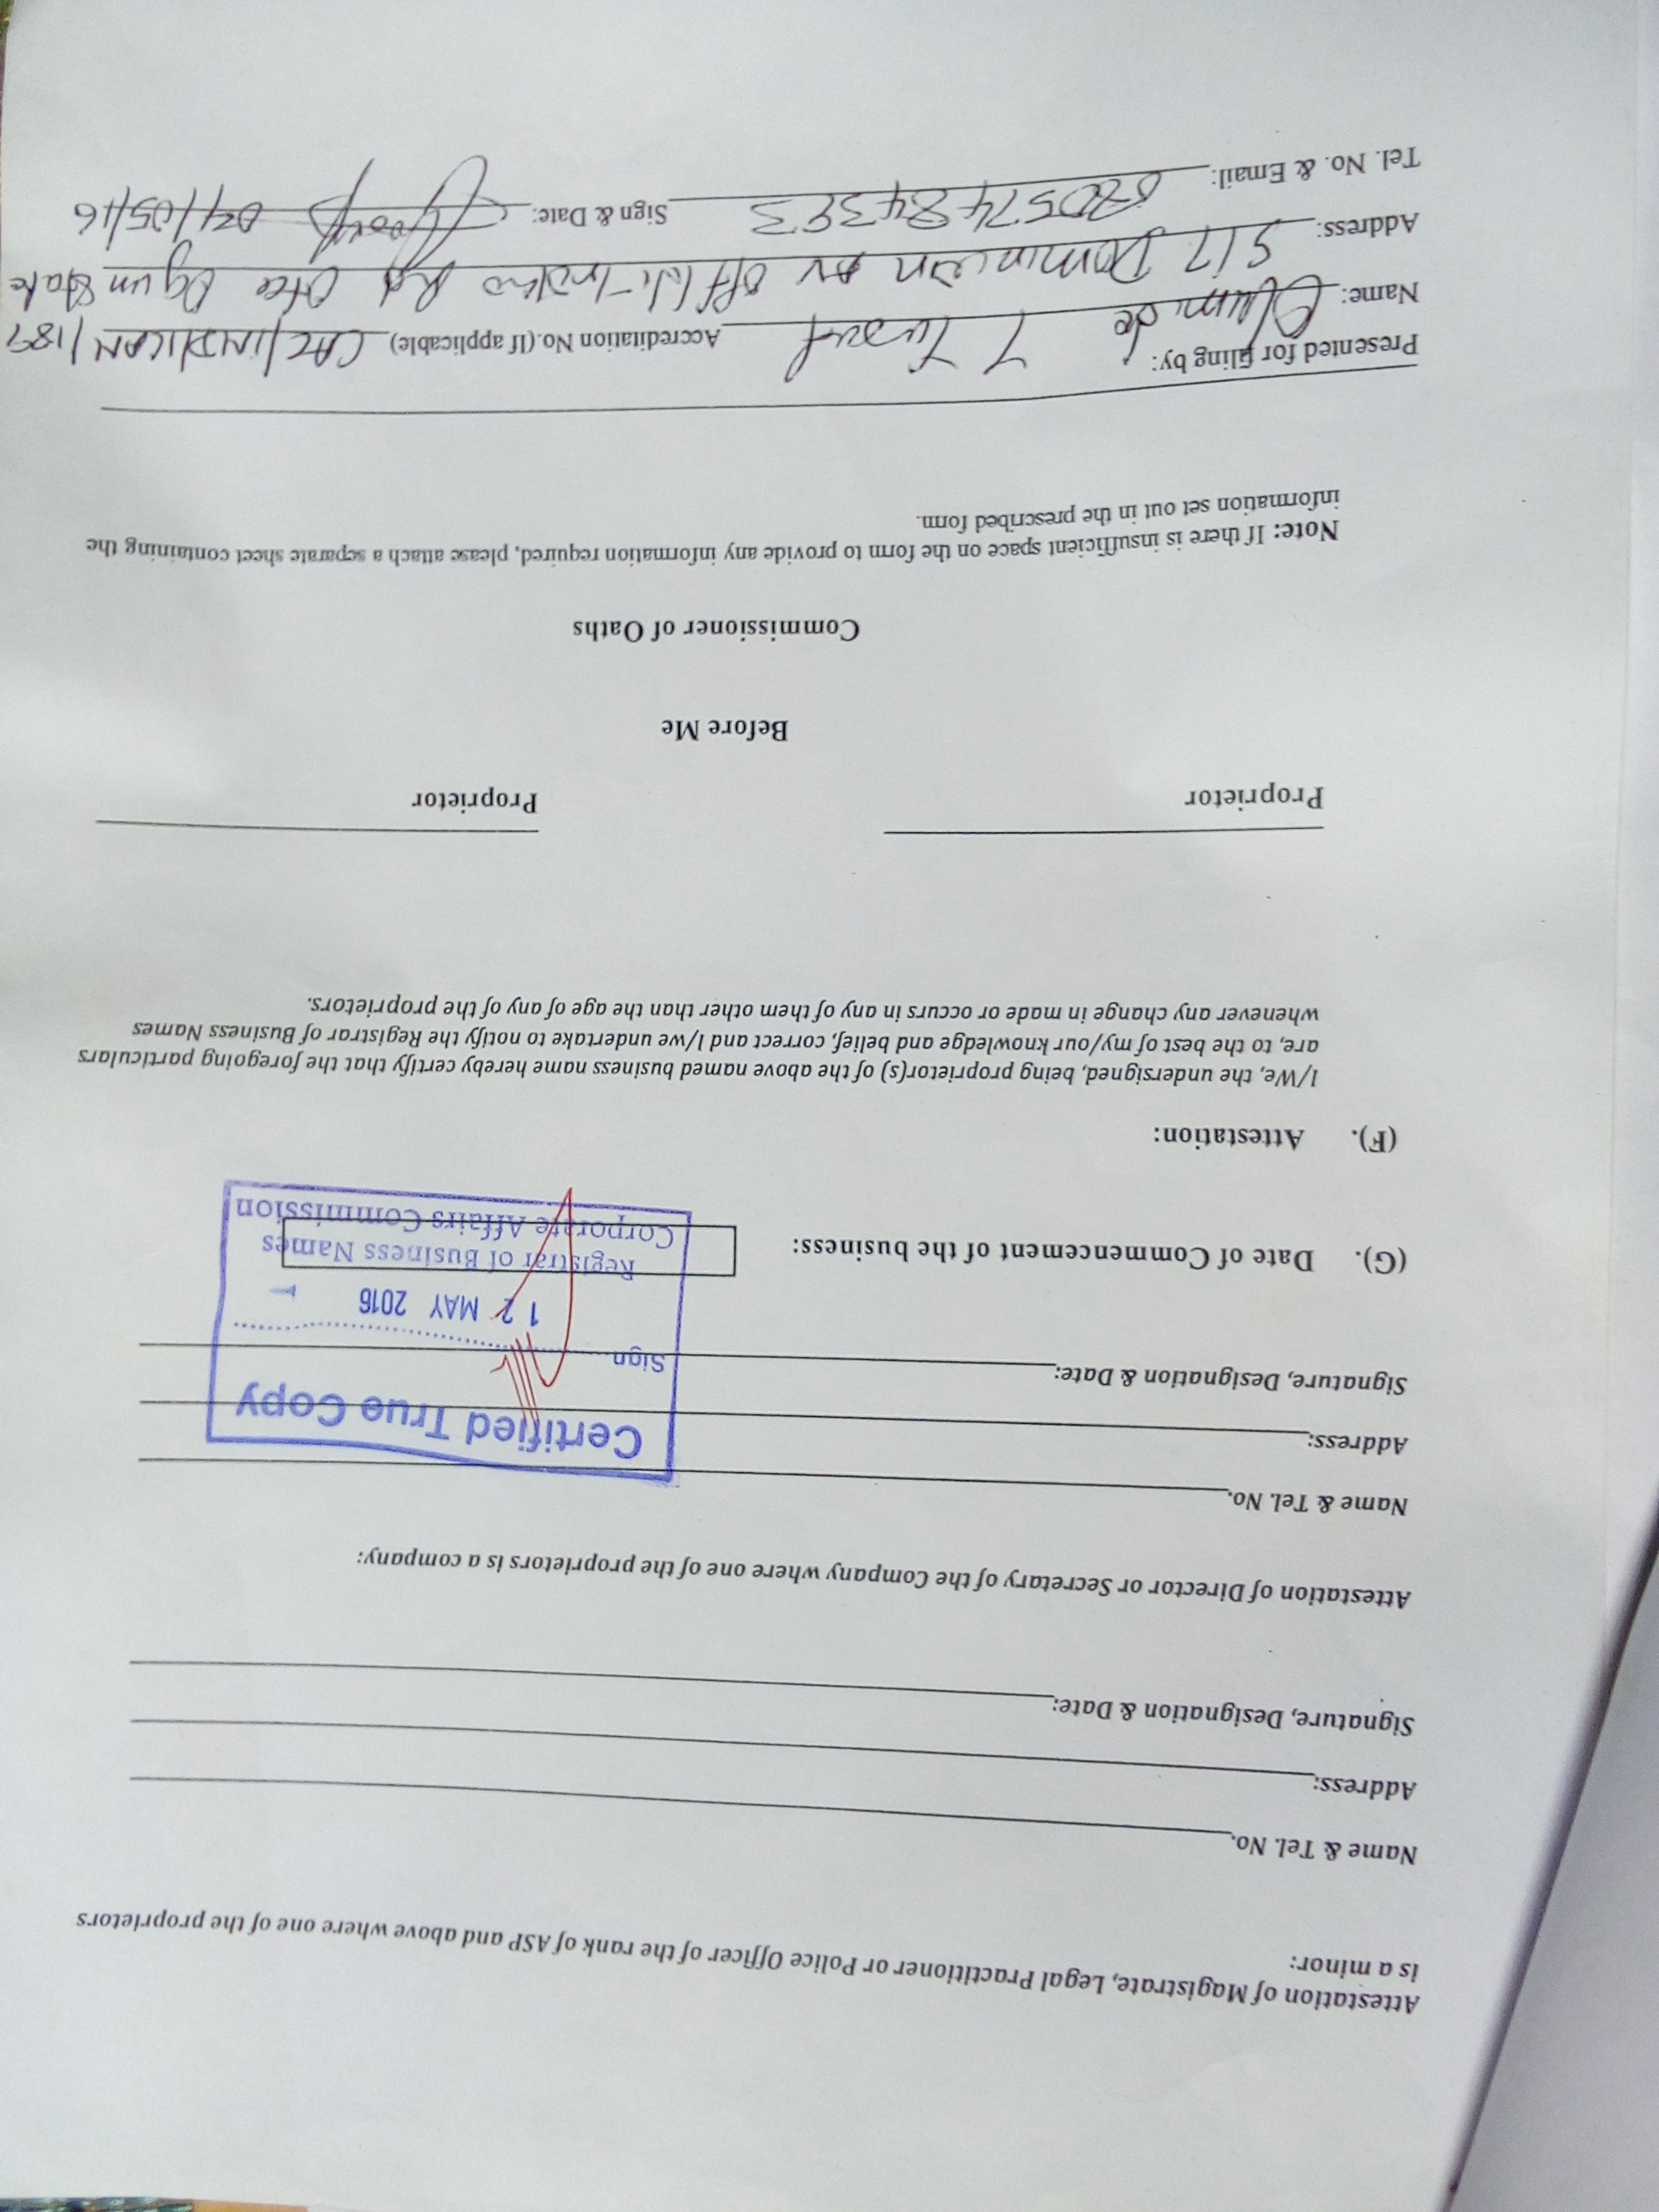 Attestation of Magistrate, Legal Practitioner or Police Officer of the rank of ASP and above where one of the proprietors
is a minor:
Name & Tel. No.
Address:
Signature, Designation & Date:
Attestation of Director or Secretary of the Company where one of the proprietors is a company:
Name & Tel. No.
Address:
Signature, Designation & Date:
Certified True Copy
Sign
12 MAY 2016
Registrar of Business Names
Corporate Affairs Commission
(G). Date of Commencement of the business:
(F). Attestation:
I/We, the undersigned, being proprietor(s) of the above named business name hereby certify that the foregoing particulars
are, to the best of my/our knowledge and belief, correct and I/we undertake to notify the Registrar of Business Names
whenever any change in made or occurs in any of them other than the age of any of the proprietors.
Proprietor Proprietor
Before Me
Commissioner of Oaths
Note: If there is insufficient space on the form to provide any information required, please attach a separate sheet containing the
information set out in the prescribed form.
Presented for filing by:
Name: Olumide T Accreditation No.(If applicable)
Address: Dominion Ogun State
Tel. No. & Email: Sign & Date: /05/16